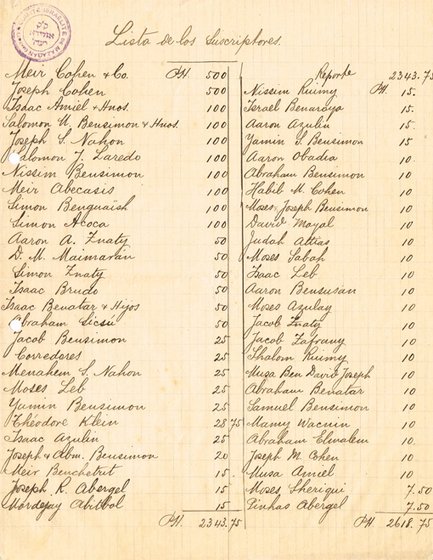 Lista de los Suscriptores.
Meir Cohen & Co. PH. 500
Joseph Cohen 500
Isaac Amiel & Hnos. 100
Salomon U. Bensimon & Hnos. 100
Joseph S. Nahon 100
Salomon J. Laredo 100
Nissim Bensimon 100
Meir Abecasis 100
Simon Benguaish 100
Simon Acoca 100
Aaron A. Znaty 50
D. M. Maimaran 50
Simon Znaty 50
Isaac Brudo 50
Isaac Benatar & Hijos 50
Abraham Sicsu 50
Jacob Bensimon 25
Corredores 25
Menahem S. Nahon 25
Moses Leb 25
Yamin Bensimon 25
Théodore Klein 28.75
Isaac Azulin 25
Joseph & Abm. Bensimon 20
Meir Benchetrit 15
Joseph R. Abergel 15
Mordejay Abitbol 15
PH. 2343.75
Reporte 2343.75
Nissim Ruimy PH. 15.
Israel Benaroya 15.
Aaron Azulin 15.
Yamin S. Bensimon 15
Aaron Obadia 10
Abraham Bensimon 10
Habib M. Cohen 10
Moses Joseph Bensimon 10
David Moyal 10
Judah Attias 10
Moses Sabah 10
Isaac Leb 10
Aaron Bensusan 10
Moses Azulay 10
Jacob Znaty 10
Jacob Zafrany 10
Shalom Ruimy 10
Musa Ben David Joseph 10
Abraham Benatar 10
Samuel Bensimon 10
Mamy Wacnin 10
Abraham Elmalem 10
Joseph M. Cohen 10
Musa Amiel 10
Moses Sheriqui 7.50
Pinhas Abergel 7.50
PH. 2618.75